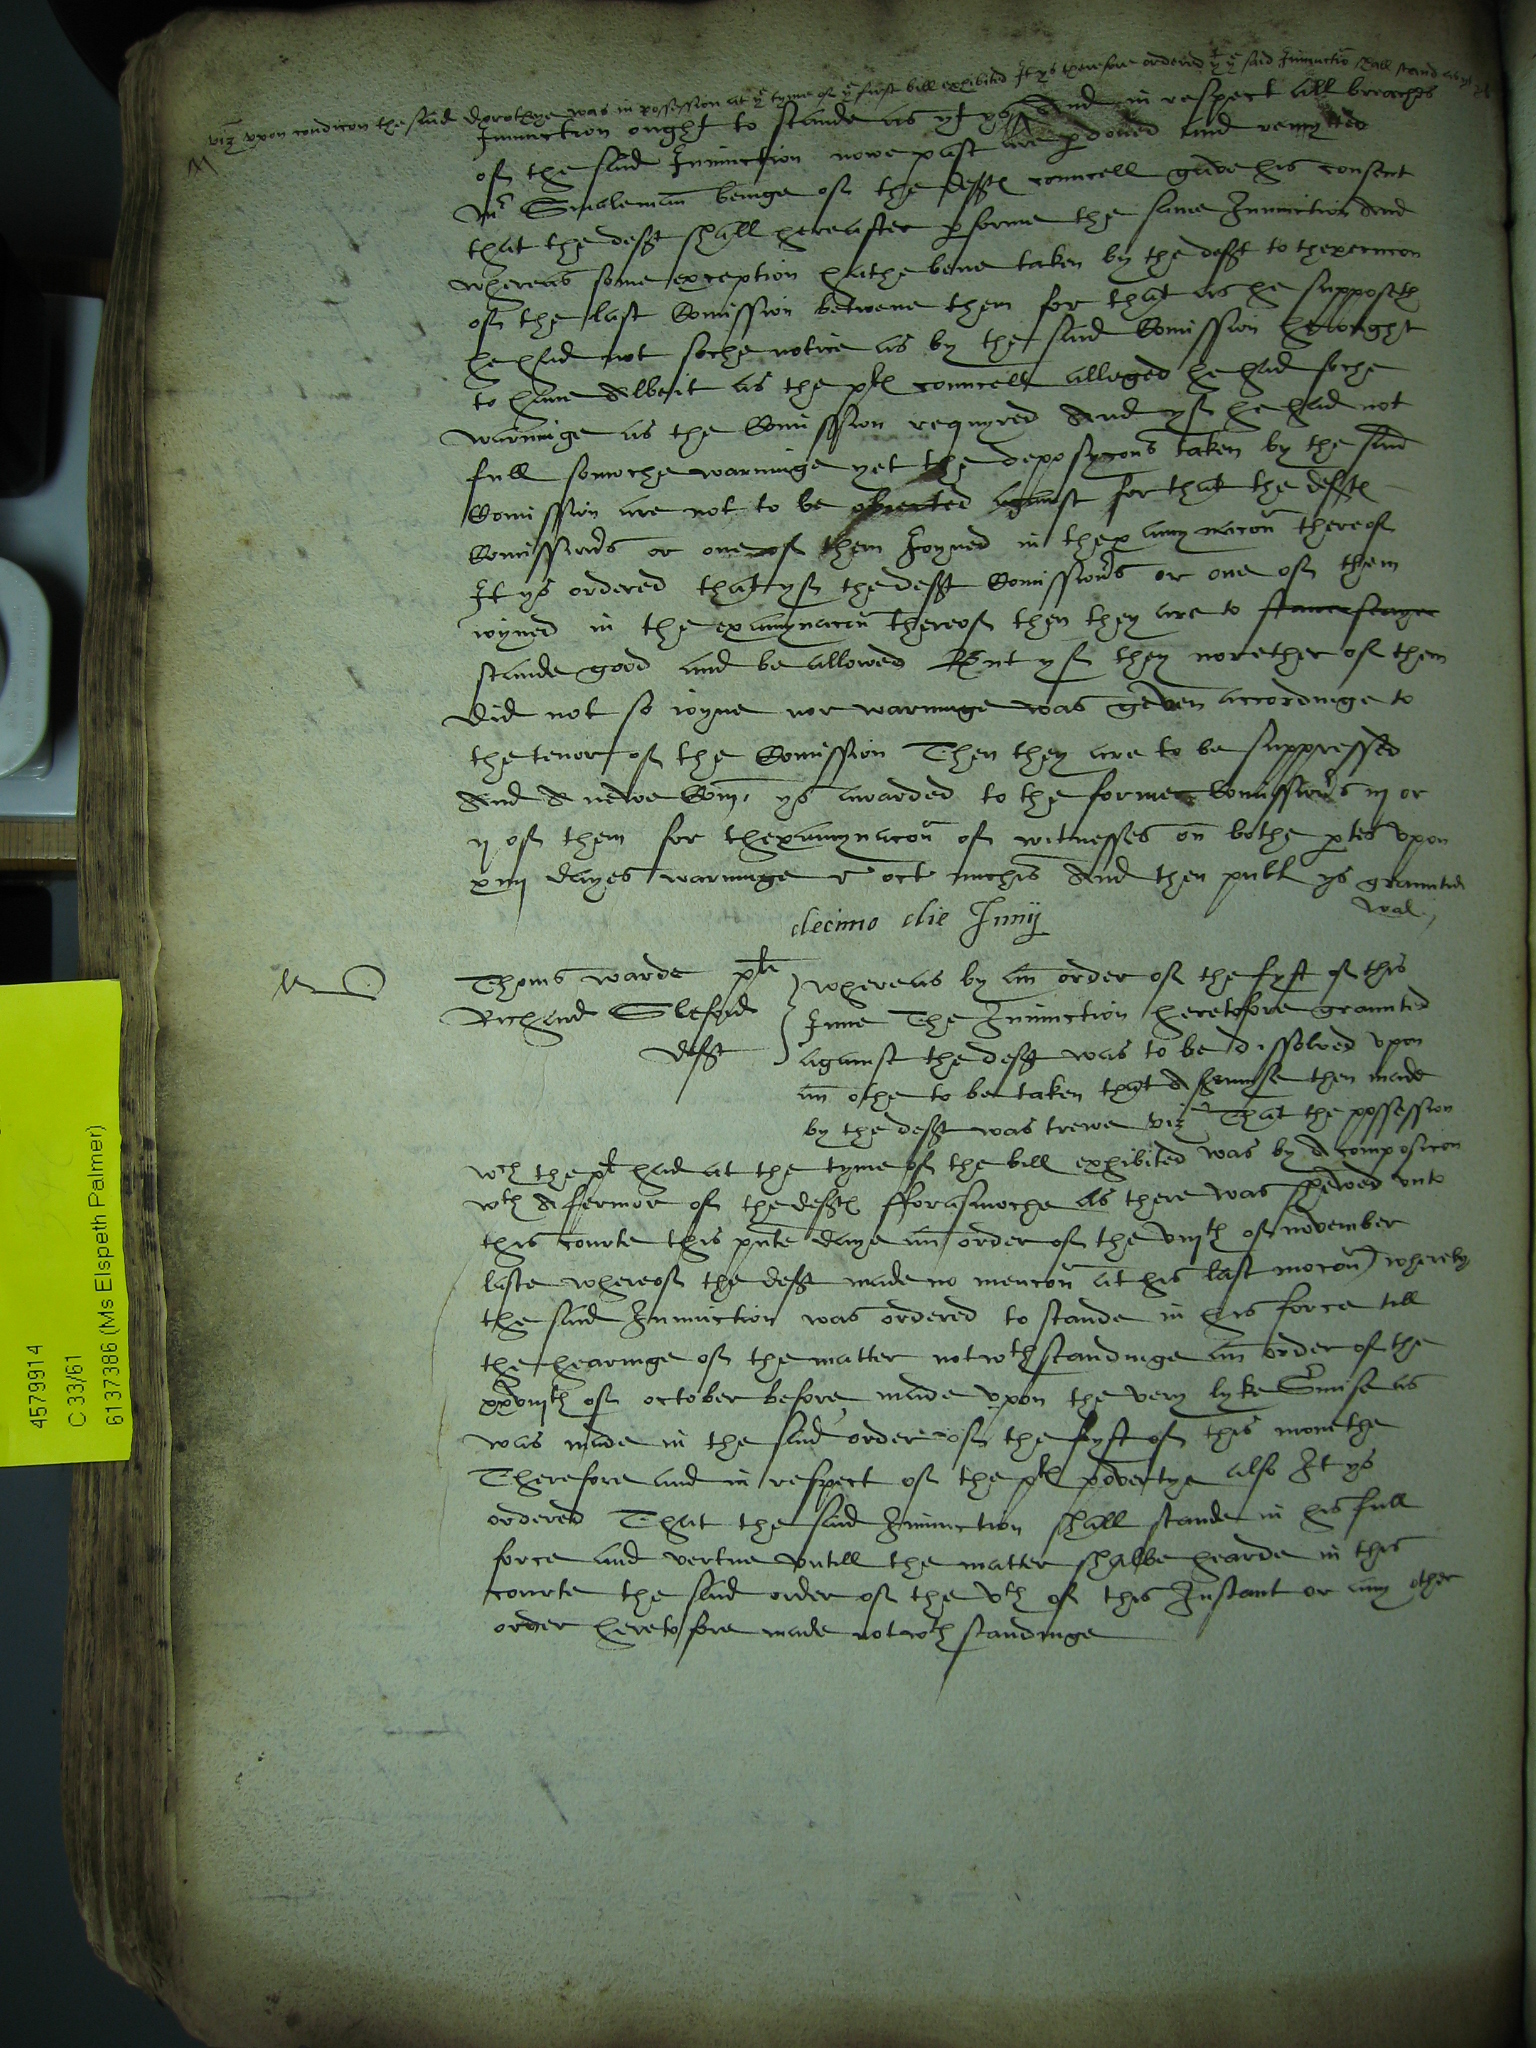 viz upon condicon the said Dorothye was in possession at ye tyme of ye first bill exhibited It ys therefore ordered yt ye said Iniunctiō shall stand as yt
Iniunction ought to stande as yt ys And in respect all breaches
of the said Iniunction nowe past are pdoned and remytted
Mr Smalemañ beinge of the defftes councell gave his consent
that the defft shall hereafter pforme the same Iniunction And
whereas some exception hathe bene taken by the defft to thexecucon
of the last Comission betwene them for that as he supposeth
he had not soche notice as by the said Comission he ought
to have Albeit as the pltes councell alleged he had soche
warninge as the Comission requyred And yf he had not
full somoche warninge yet the deposycons taken by the said
Comission are not to be obiected against for that the defftes
Comissiors or one of them Ioyned in thexamynacoñ thereof
It ys ordered that yf the defft Comissiors or one of them
ioyned in the examynacoñ thereof then they are to
stande good and be allowed But yf they nor ether of them
did not so ioyne nor warninge was geven accordinge to
the tenor of the Comission Then they are to be suppressed
And A newe Com. ys awarded to the former Comissiors iij or
ij of them for thexamynacoñ of witnesses on bothe ptes upon
xiiij dayes warninge r oct michis And then publ ys graunted
Wal.
decimo die Junij
Thoms Warde plt
Richard Sleford
defft
Whereas by añ order of the fyft of this
June The Iniunction heretofore graunted
against the defft was to be dissolved upon
añ othe to be taken that A surmise then made
by the defft was trewe viz That the possession
wch the plt had at the tyme of the bill exhibited was by A composicon
wth A fermor of the defftes fforasmoche as there was shewed unto
this courte this pnte daye añ order of the viijth of November
laste whereof the defft made no mencoñ at his last mocoñ) whereby
the said Iniunction was ordered to stande in his force till
the hearinge of the matter notwthstandinge añ order of the
xxviijth of october before made upon the very lyke Surmise as
was made in the said order of the fyft of this monethe
Therefore and in respect of the pltes povertye also It ys
ordered That the said Iniunction shall stande in his full
force and vertue untill the matter shalbe hearde in this
courte the said order of the vth of this Instant or any other
order heretofore made notwth standinge
4579914
C 33/61
6137386 (Ms Elspeth Palmer)